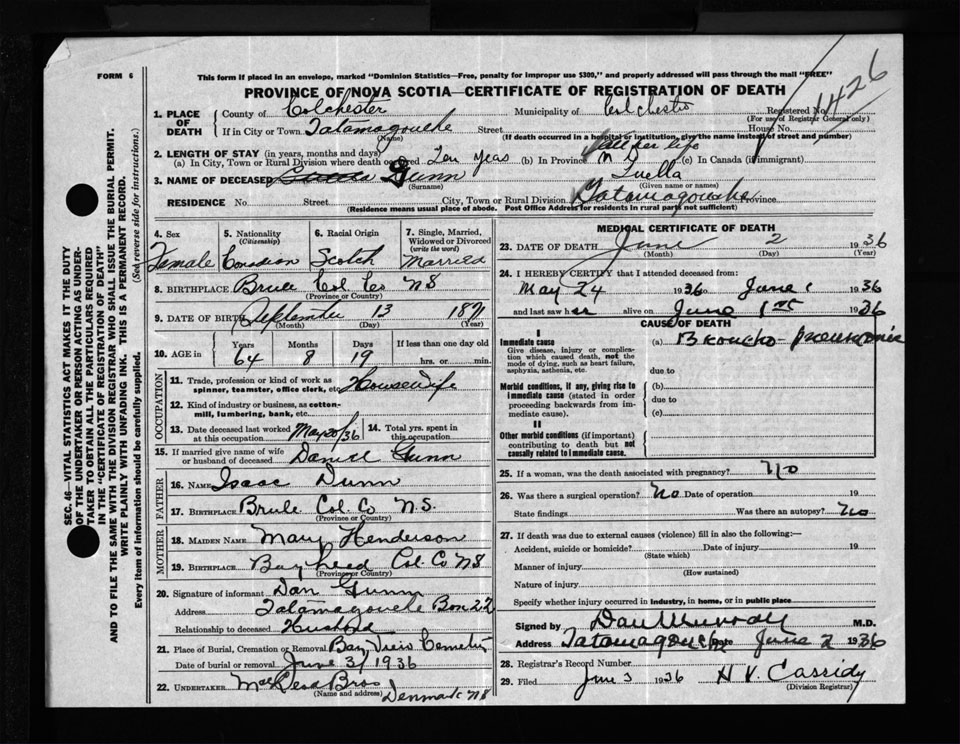 FORM 6
This form if placed in an envelope, marked "Dominion Statistics—Free, penalty for improper use $300," and properly addressed will pass through the mail "FREE"
PROVINCE OF NOVA SCOTIA—CERTIFICATE OF REGISTRATION OF DEATH
1426
1. PLACE OF DEATH
County of Colchester Municipality of Colchester Registered No.
(For use of Registrar General only)
If in City or Town Tatamagouche Street House No.
(Name) (If death occurred in a hospital or institution, give the name instead of street and number)
2. LENGTH OF STAY (in years, months and days) all her life
(a) In City, Town or Rural Division where death occurred Ten years (b) In Province N S (c) In Canada (if immigrant)
3. NAME OF DECEASED Gunn Luella
(Surname) (Given name or names)
RESIDENCE No. Street City, Town or Rural Division Tatamagouche Province
(Residence means usual place of abode. Post Office Address for residents in rural parts not sufficient)
4. Sex Female
5. Nationality (Citizenship) Canadian
6. Racial Origin Scotch
7. Single, Married, Widowed or Divorced (write the word) Married
8. BIRTHPLACE Brule Col. Co NS
(Province or Country)
9. DATE OF BIRTH September 13 1871
(Month) (Day) (Year)
10. AGE in Years 64 Months 8 Days 19 If less than one day old hrs. or min.
OCCUPATION
11. Trade, profession or kind of work as spinner, teamster, office clerk, etc. Housewife
12. Kind of industry or business, as cotton-mill, lumbering, bank, etc.
13. Date deceased last worked at this occupation May 20/36
14. Total yrs. spent in this occupation
15. If married give name of wife or husband of deceased Daniel Gunn
FATHER
16. NAME Isaac Dunn
17. BIRTHPLACE Brule Col. Co N.S.
(Province or Country)
MOTHER
18. MAIDEN NAME Mary Henderson
19. BIRTHPLACE Bayhead Col. Co NS
(Province or Country)
20. Signature of informant Dan Gunn
Address Tatamagouche Box 22
Relationship to deceased Husband
21. Place of Burial, Cremation or Removal Bay View Cemetery
Date of burial or removal June 3/1936
22. UNDERTAKER Bros Denmark NS
(Name and address)
MEDICAL CERTIFICATE OF DEATH
23. DATE OF DEATH June 2 1936
(Month) (Day) (Year)
24. I HEREBY CERTIFY that I attended deceased from:
May 24 1936 to June 1 1936
and last saw her alive on June 1st 1936
CAUSE OF DEATH
I
Immediate cause
Give disease, injury or complication which caused death, not the mode of dying, such as heart failure, asphyxia, asthenia, etc.
(a) Broncho-pneumonia
due to
Morbid conditions, if any, giving rise to immediate cause (stated in order proceeding backwards from immediate cause).
(b)
due to
(c)
II
Other morbid conditions (if important) contributing to death but not causally related to immediate cause.
25. If a woman, was the death associated with pregnancy? No
26. Was there a surgical operation? No Date of operation 19
State findings Was there an autopsy? No
27. If death was due to external causes (violence) fill in also the following:—
Accident, suicide or homicide? Date of injury 19
(State which)
Manner of injury
(How sustained)
Nature of injury
Specify whether injury occurred in industry, in home, or in public place
Signed by Dan Murray M.D.
Address Tatamagouche Date June 2 1936
28. Registrar's Record Number
29. Filed June 3 1936 H V. Cassidy
(Division Registrar)
SEC. 46—VITAL STATISTICS ACT MAKES IT THE DUTY
OF THE UNDERTAKER OR PERSON ACTING AS UNDER-
TAKER TO OBTAIN ALL THE PARTICULARS REQUIRED
IN THE "CERTIFICATE OF REGISTRATION OF DEATH"
AND TO FILE THE SAME WITH THE DIVISION REGISTRAR WHO SHALL ISSUE THE BURIAL PERMIT.
WRITE PLAINLY WITH UNFADING INK. THIS IS A PERMANENT RECORD.
Every item of information should be carefully supplied. (See reverse side for instructions.)